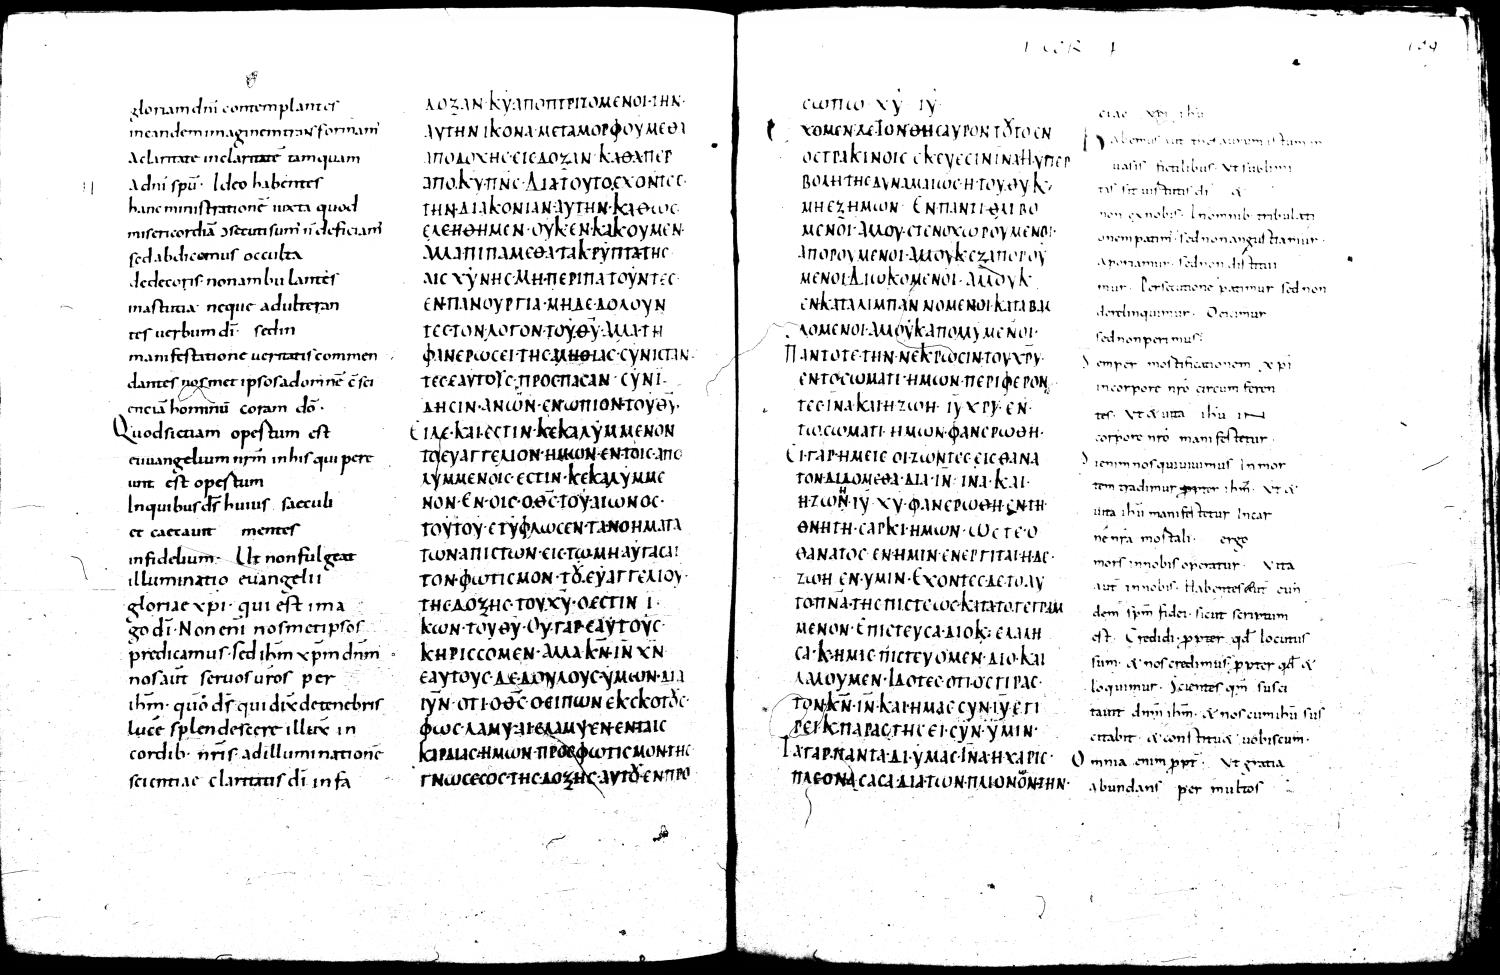 gloriam dni contemplantes
in eandem imaginem transformam̄
a claritate in claritatē tamquam
a dni spū · Ideo habentes
hanc ministrationē iuxta quod
misericordiā ɔsecuti sum̄ n̄ deficiam̄
sed abdicamus occulta
dedecoris · non ambulantes
in astutia neque adulteran
tes uerbum dī · sed in
manifestatione ueritatis commen
dantes nosmet ipsos ad omnē c̄sci
enciā hominū coram dō ·
Quod si etiam opertum est
euuangelium nrm̄ in his qui pere
unt est opertum
In quibus ds̄ huius saeculi
et caecauit mentes
infidelium · Ut non fulgeat
illuminatio euangelii
gloriae xpi · qui est ima
go dī · Non enī nosmetipsos
predicamus · sed ihm̄ xpm dn̄m
nos aut̄ seruos uros per
ihm̄ · quō ds̄ qui dix̄ de tenebris
lucē splendescere illux̄ in
cordib · nr̄is ad illuminationē
scientiae claritatis dī in fa
ΔΟΞΑΝ·ΚῩ ΑΠΟΠΤΡΙΖΟΜΕΝΟΙ·ΤΗΝ·
ΑΥΤΗΝ ΙΚΟΝΑ·ΜΕΤΑΜΟΡΦΟΥΜΕΘΑ
ΑΠΟΔΟΧΗC·ΕΙC ΔΟΖΑΝ·ΚΑΘΑΠΕΡ
ΑΠΟ·ΚΥ·ΠΝC·ΔΙΑΤΟΥΤΟ·ΕΧΟΝΤΕC·
ΤΗΝ·ΔΙΑΚΟΝΙΑΝ·ΑΥΤΗΝ·ΚΑΘΩC·
ΕΛΕΗΘΗΜΕΝ·ΟΥΚ ΕΝ·ΚΑΚΟΥΜΕΝ·
ΑΛΛΑΠΙΠΑΜΕΘΑ·ΤΑ ΚΡΥΠΤΑ ΤΗC·
ΑΙCΧΥΝΗC·ΜΗ ΠΕΡΙΠΑΤΟΥΝΤΕC·
ΕΝ·ΠΑΝΟΥΡΓΙΑ·ΜΗΔΕ·ΔΟΛΟΥΝ
ΤΕC·ΤΟΝ·ΛΟΓΟΝ·ΤΟΥ·ΘΥ·ΑΛΛΑ·ΤΗ
ΦΑΝΕΡΩCΕΙ·ΤΗC·ΑΛΗΘΙΑC·CΥΝΙCΤΑΝ·
ΤΕC·ΕΑΥΤΟΥC·ΠΡΟCΠΑCΑΝ CΥΝΙ·
ΔΗCΙΝ·ΑΝΩΝ·ΕΝΩΠΙΟΝ·ΤΟΥ·ΘΥ·
ΕΙΔΕ·ΚΑΙ·ΕCΤΙΝ·ΚΕΚΑΛΥΜΜΕΝΟΝ
ΤΟ ΕΥΑΓΓΕΛΙΟΝ·ΗΜΩΝ·ΕΝ·ΤΟΙC·ΑΠΟ
ΛΥΜΜΕΝΟΙC·ΕCΤΙΝ·ΚΕΚΑΛΥΜΜΕ
ΝΟΝ·ΕΝ·ΟΙC·ΟΘC·ΤΟΥ·ΑΙΩΝΟC·
ΤΟΥΤΟΥ·ΕΤΥΦΛΩCΕΝ·ΤΑ ΝΟΗΜΑΤΑ
ΤΩΝ·ΑΠΙCΤΩΝ·ΕΙC·ΤΩ·ΜΗ·ΑΥΓΑCΑΙ
ΤΟΝ·ΦΩΤΙCΜΟΝ·ΤΟΥ·ΕΥΑΓΓΕΛΙΟΥ·
ΤΗC·ΔΟΞΗC·ΤΟΥ·ΧΥ·ΟC ΕCΤΙΝ Ι·
ΚΩΝ·ΤΟΥ·ΘΥ·ΟΥ·ΓΑΡ·ΕΑΥΤΟΥC·
ΚΗΡΙCCΟΜΕΝ·ΑΛΛΑ·ΚΝ·ΙΝ ΧΝ·
ΕΑΥΤΟΥC·ΔΕ·ΔΟΥΛΟΥC·ΥΜΩΝ·ΔΙΑ
ΙΥΝ·ΟΤΙ·ΟΘC·Ο ΕΙΠΩΝ·ΕΚ CΚΟΤΟΥC·
ΦΩC·ΛΑΜΨΑΙ·ΕΛΑΜΨΕΝ·ΕΝ ΤΑΙC
ΚΑΡΔΙΑC·ΗΜΩΝ·ΠΡΟC·ΦΩΤΙCΜΟΝ·ΤΗC
ΓΝΩCΕΟC·ΤΗC·ΔΟΞΗC·ΑΥΤΟΥ·ΕΝ·ΠΡΟ
CΩΠΩ ΧΥ ΙΥ·
ΧΟΜΕΝ·ΔΕ·ΤΟΝ·ΘΗCΑΥΡΟΝ ΤΟΥΤΟ ΕΝ
ΟCΤΡΑΚΙΝΟΙC CΚΕΥΕCΙΝ ΙΝΑ Η ΥΠΕΡ
ΒΟΛΗ·ΤΗC ΔΥΝΑΜΑΙΩC·Η·ΤΟΥ·ΘΥ Κ·
ΜΗ ΕΞ ΗΜΩΝ· ΕΝ ΠΑΝΤΙ·ΘΛΙΒΟ
ΜΕΝΟΙ·ΑΛΛΟΥ·CΤΕΝΟΧΩΡΟΥΜΕΝΟΙ·
ΑΠΟΡΟΥΜΕΝΟΙ·ΑΛΛΟΥΚ ΕΞΑΠΟΡΟΥ
ΜΕΝΟΙ·ΔΙΩΚΟΜΕΝΟΙ·ΑΛΛΟΥΚ
ΕΝΚΑΤΑΛΙΜΠΑΝΝΟΜΕΝΟΙ·ΚΑΤΑΒΑΛ
ΛΟΜΕΝΟΙ·ΑΛΛΟΥΚ ΑΠΟΛΛΥΜΕΝΟΙ·
ΠΑΝΤΟΤΕ·ΤΗΝ·ΝΕΚΡΩCΙΝ·ΤΟΥ·ΧΡΥ·
ΕΝ·ΤΟ CΩΜΑΤΙ·ΗΜΩΝ·ΠΕΡΙΦΕΡΟΝ
ΤΕC·ΙΝΑ·ΚΑΙ·Η ΖΩΗ· ΙΥ ΧΡΥ· ΕΝ·
ΤΩ·CΩΜΑΤΙ·ΗΜΩΝ·ΦΑΝΕΡΩΘΗ·
ΕΙ·ΓΑΡ·ΗΜΕΙC·ΟΙ·ΖΩΝΤΕC·ΕΙC·ΘΑΝΑ
ΤΟΝ·ΔΙΔΟΜΕΘΑ·ΔΙΑ·ΙΝ· ΙΝΑ·ΚΑΙ·
Η ΖΩΗ·ΙΥ ΧΥ·ΦΑΝΕΡΩΘΗ·ΕΝ·ΤΗ·
ΘΝΗΤΗ·CΑΡΚΙ·ΗΜΩΝ·ΩCΤΕ·Ο
ΘΑΝΑΤΟC·ΕΝ·ΗΜΙΝ·ΕΝΕΡΓΙΤΑΙ·Η ΔΕ·
ΖΩΗ·ΕΝ·ΥΜΙΝ·ΕΧΟΝΤΕC·ΔΕ·ΤΟ·ΑΥ
ΤΟ·ΠΝΑ·ΤΗC ΠΙCΤΕΩC·ΚΑΤΑ ΤΟ ΓΕΓΡΑΜ
ΜΕΝΟΝ·ΕΠΙCΤΕΥCΑ·ΔΙΟ Κ· ΕΛΑΛΗ
CΑ·Κ·ΗΜΙC ΠΙCΤΕΥΟΜΕΝ·ΔΙΟ·ΚΑΙ
ΛΑΛΟΥΜΕΝ·ΙΔΟΤΕC·ΟΤΙ·Ο ΕΓΙΡΑC·
ΤΟΝ·ΚΝ·ΙΝ·ΚΑΙ·ΗΜΑC·CΥΝ·ΙΥ·ΕΓΙ
ΡΕΙ·Κ·ΠΑΡΑCΤΗCΕΙ·CΥΝ·ΥΜΙΝ·
ΤΑ ΓΑΡ·ΠΑΝΤΑ·ΔΙ·ΥΜΑC·ΙΝΑ·Η·ΧΑΡΙC·
ΠΛΕΟΝΑCΑCΑ·ΔΙΑ·ΤΩΝ·ΠΛΙΟΝΩΝ·ΤΗΝ·
ciae xpi ihu
habemus aut thesaurum istum in
uasis fictilibus · Ut sublimi
tas sit uirtutis di &
non ex nobis · In omnib tribulati
onem patim̄ · sed non angustiamur ·
aporiamur · sed non distitui
mur · Persecutione patimur sed non
derelinquimur · Deicimur
sed non perimus
Semper mortificationem xpi
in corpore nro circum feren
tes · Ut & uita ihu in
corpore nro manifestetur ·
Si enim nos qui uiuimus In mor
tem tradimur propter ihm̄ · Ut &
uita ihu manifestetur In car
ne nra mortali · ergo
mors in nobis operatur · Uita
aut in nobis · Habentes aut eun
dem spm fidei · sicut scriptum
est · Credidi · ppter qd locutus
sum · & nos credimus · ppter qd &
loquimur · Scientes qm̄ susci
tauit dnm̄ ihm̄ · & nos cum ihu sus
citabit · & constitu& uobiscum ·
Omnia enim ppt̄ · Ut gratia
abundans per multos